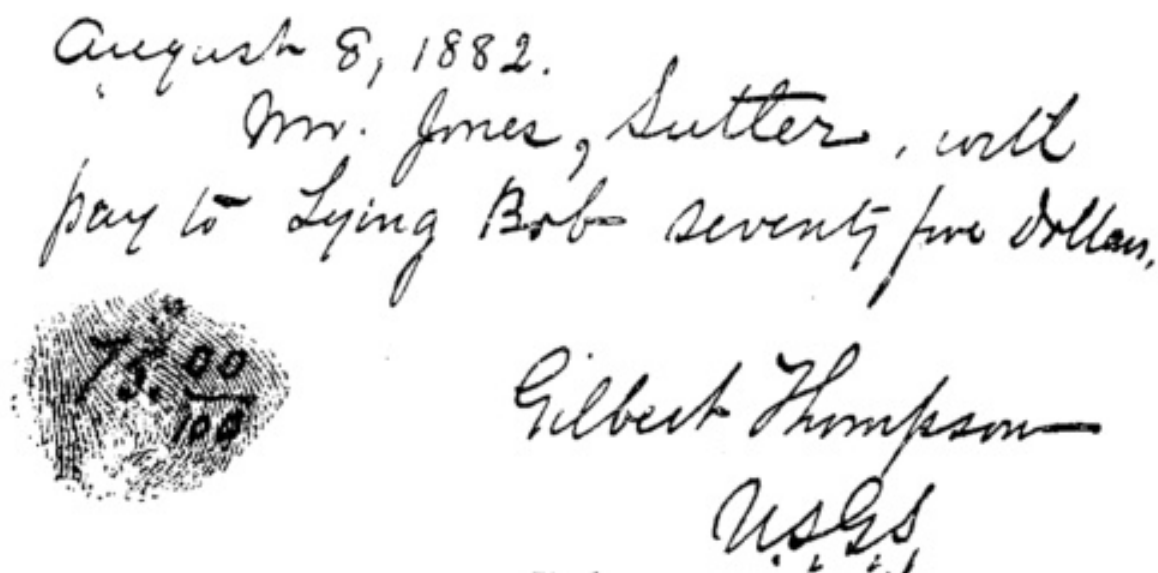 August 8, 1882.
Mr. Jones, Sutler, will
pay to Lying Bob seventy five dollars.
75. 00/100
Gilbert Thompson
U.S.G.S.